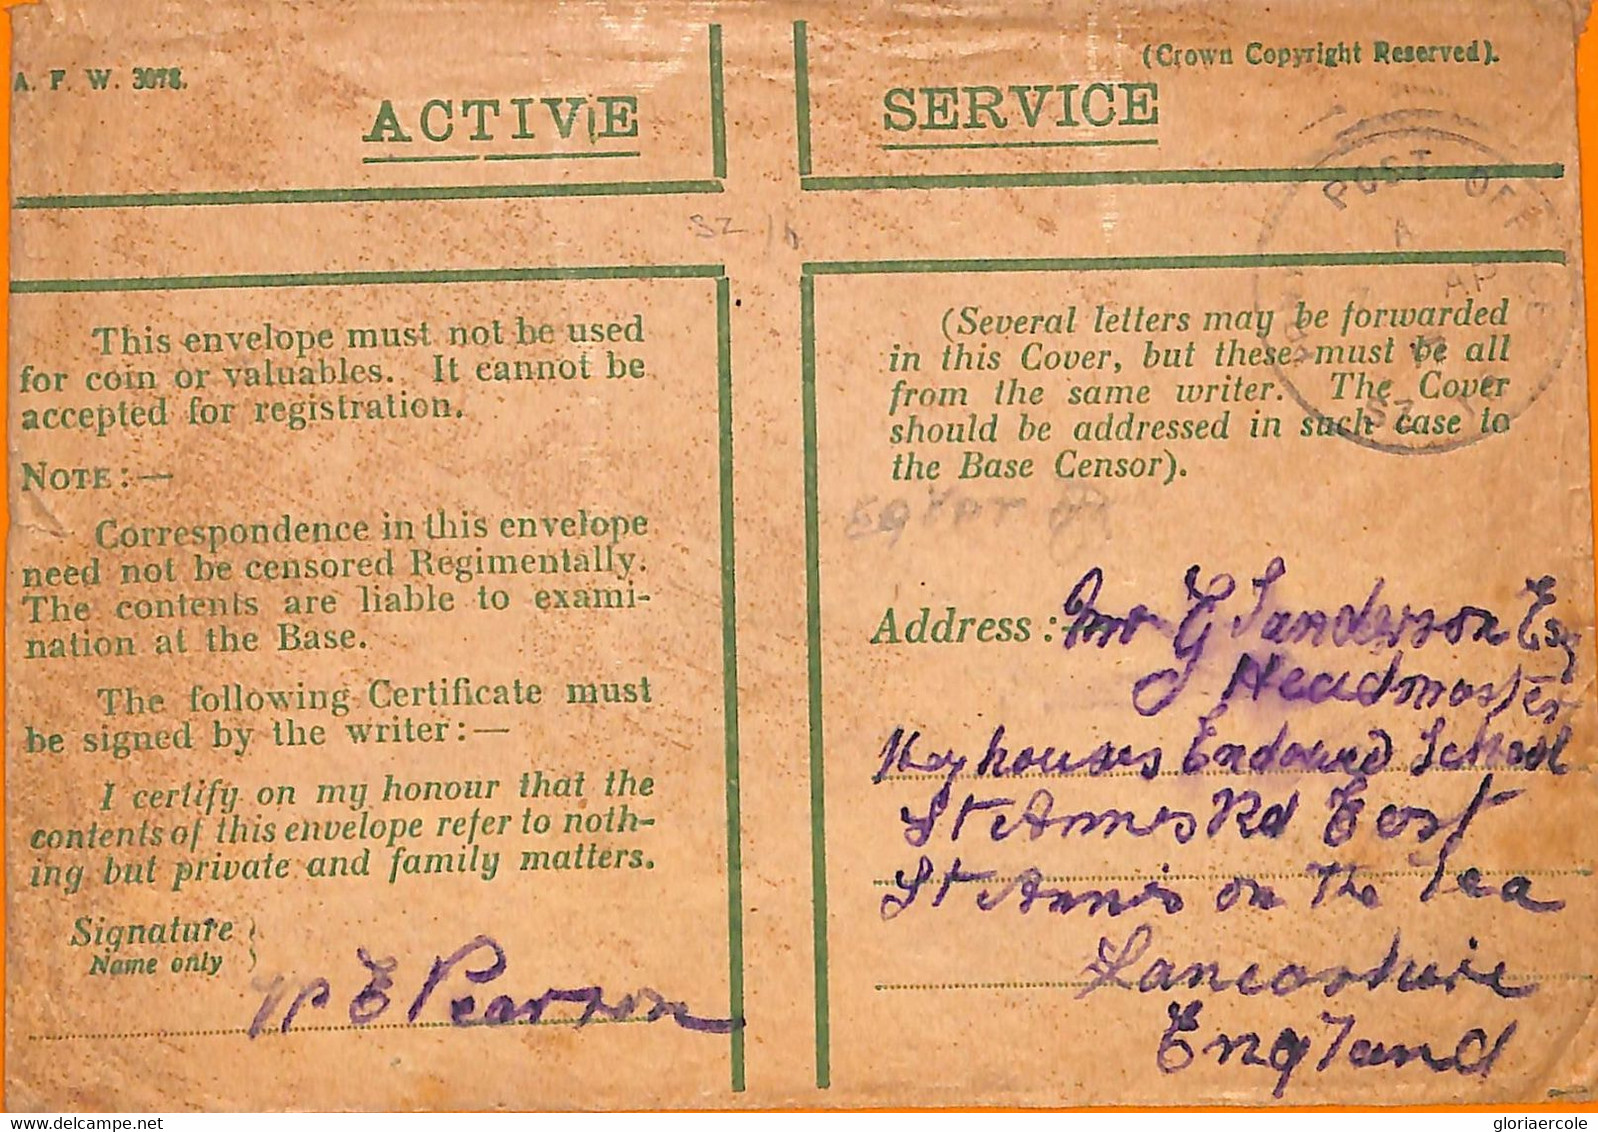 A. F. W. 3078.
(Crown Copyright Reserved).
ACTIVE SERVICE
POST OFF
A
AP
SZ
SZ /
This envelope must not be used
for coin or valuables. It cannot be
accepted for registration.
NOTE:—
Correspondence in this envelope
need not be censored Regimentally.
The contents are liable to exami-
nation at the Base.
The following Certificate must
be signed by the writer:—
I certify on my honour that the
contents of this envelope refer to noth-
ing but private and family matters.
Signature }
Name only }
W E Pearson
(Several letters may be forwarded
in this Cover, but these must be all
from the same writer. The Cover
should be addressed in such case to
the Base Censor).
Address:— Mr G Sanderson Esq
Headmaster
Heyhouses Endowed School
St Annes Rd East
St Annes on The Sea
Lancashire
England
gloriaercole